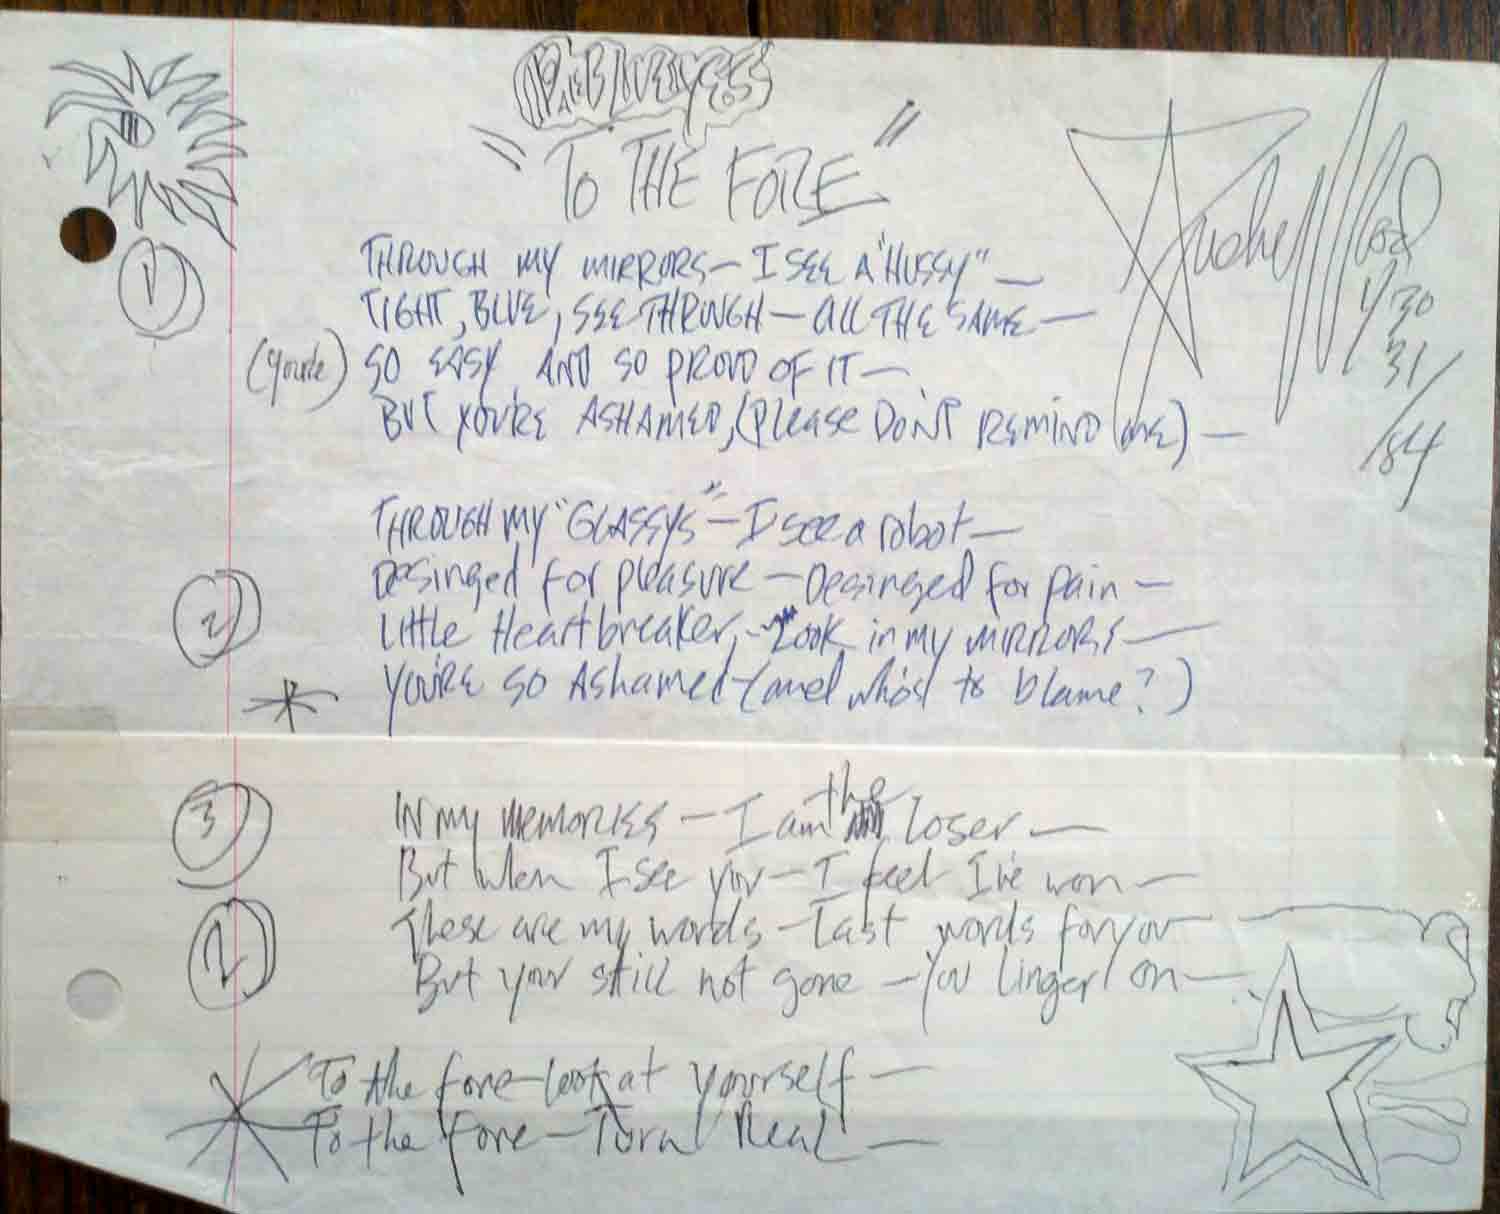 "TO THE FORE"
1/30
31/
/84
1
THROUGH MY MIRRORS — I SEE A "HUSSY" —
TIGHT, BLUE, SEE THROUGH — All THE SAME —
(You're) SO EASY AND SO PROUD OF IT —
BUT YOU'RE ASHAMED, (Please DON'T REMIND ME) —
2
THROUGH MY "GLASSYS" — I see a robot —
Desinged for pleasure — Desinged for pain —
Little Heartbreaker, - Look in my MIRRORS —
YOU'RE SO AShamed - (and who's to blame?)
3
IN MY MEMORIES — I am the loser —
But when I see you — I feel I've won —
2
These are my words — Last words for you —
But your still not gone — You linger on —
To the fore — look at yourself —
To the fore — Turn Real —